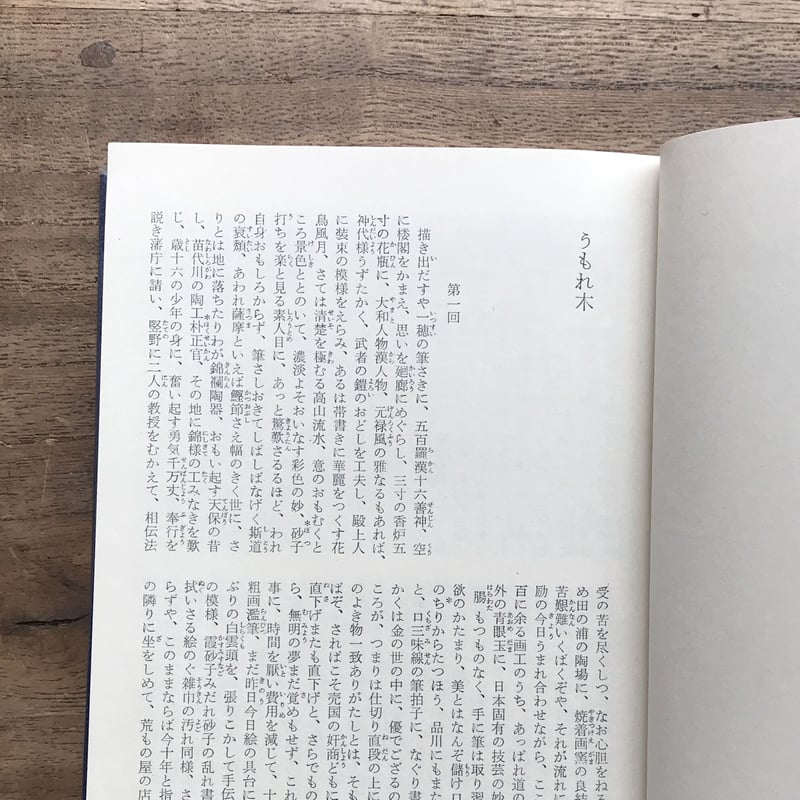 うもれ木
第一回
描き出だすや一穂の筆さきに、五百羅漢十六善神、空
に楼閣をかまえ、思いを廻廊にめぐらし、三寸の香炉五
寸の花瓶に、大和人物漢人物、元禄風の雅なるもあれば、
神代様うずたかく、武者の鎧のおどしを工夫し、殿上人
に装束の模様をえらみ、あるは帯書きに華麗をつくす花
鳥風月、さては清楚を極むる高山流水、意のおもむくと
ころ景色ととのいて、濃淡よそおいなす彩色の妙、砂子
打ちを楽と見る素人目に、あっと驚歎さるるほど、われ
自身おもしろからず、筆さしおきてしばしばなげく斯道
の衰頽、あわれ薩摩といえば鰹節さえ幅のきく世に、さ
りとは地に落ちたりわが錦襴陶器、おもい起す天保の昔
し、苗代川の陶工朴正官、その地に錦様の工みなきを歎
じ、歳十六の少年の身に、奮い起す勇気千万丈、奉行を
説き藩庁に請い、竪野に二人の教授をむかえて、相伝法
受の苦を尽くしつ、なお心胆をねる
め田の浦の陶場に、焼着画窯の良結
苦艱難いくばくぞや、それが流れに
励の今日うまれ合わせながら、ここ
百に余る画工のうち、あっぱれ道の
外の青眼玉に、日本固有の技芸の妙
腸もつものなく、手に筆は取り習
欲のかたまり、美とはなんぞ儲け口
のちりからたつほう、品川にもまた
と、口三味線の筆拍子に、なぐり書
かくは金の世の中に、優でござるの
ころが、つまりは仕切り直段の上に
のよき物一致ありがたしとは、そも
ばぞ、さればこそ売国の奸商どもに
直下げまたも直下げと、さらでもの
ら、無明の夢まだ覚めもせず、これ
事に、時間を厭い費用を減じて、十
粗画濫筆、まだ昨日今日絵の具台に
ぶりの白雲頭を、張りこかして手伝
の模様、霞砂子みだれ砂子の乱れ書
拭いさる絵のぐ雑巾の汚れ同様、さ
らずや、このままならば今十年と指
の隣りに坐をしめて、荒もの屋の店